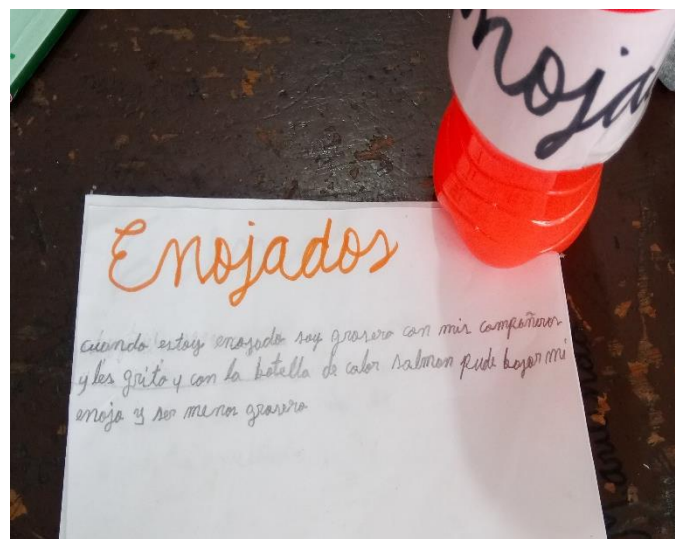 noja
Enojados
cuando estoy enojado soy grosero con mis compañeros
y les grito y con la botella de color salmon pude bajar mi
enojo y ser menos grosero